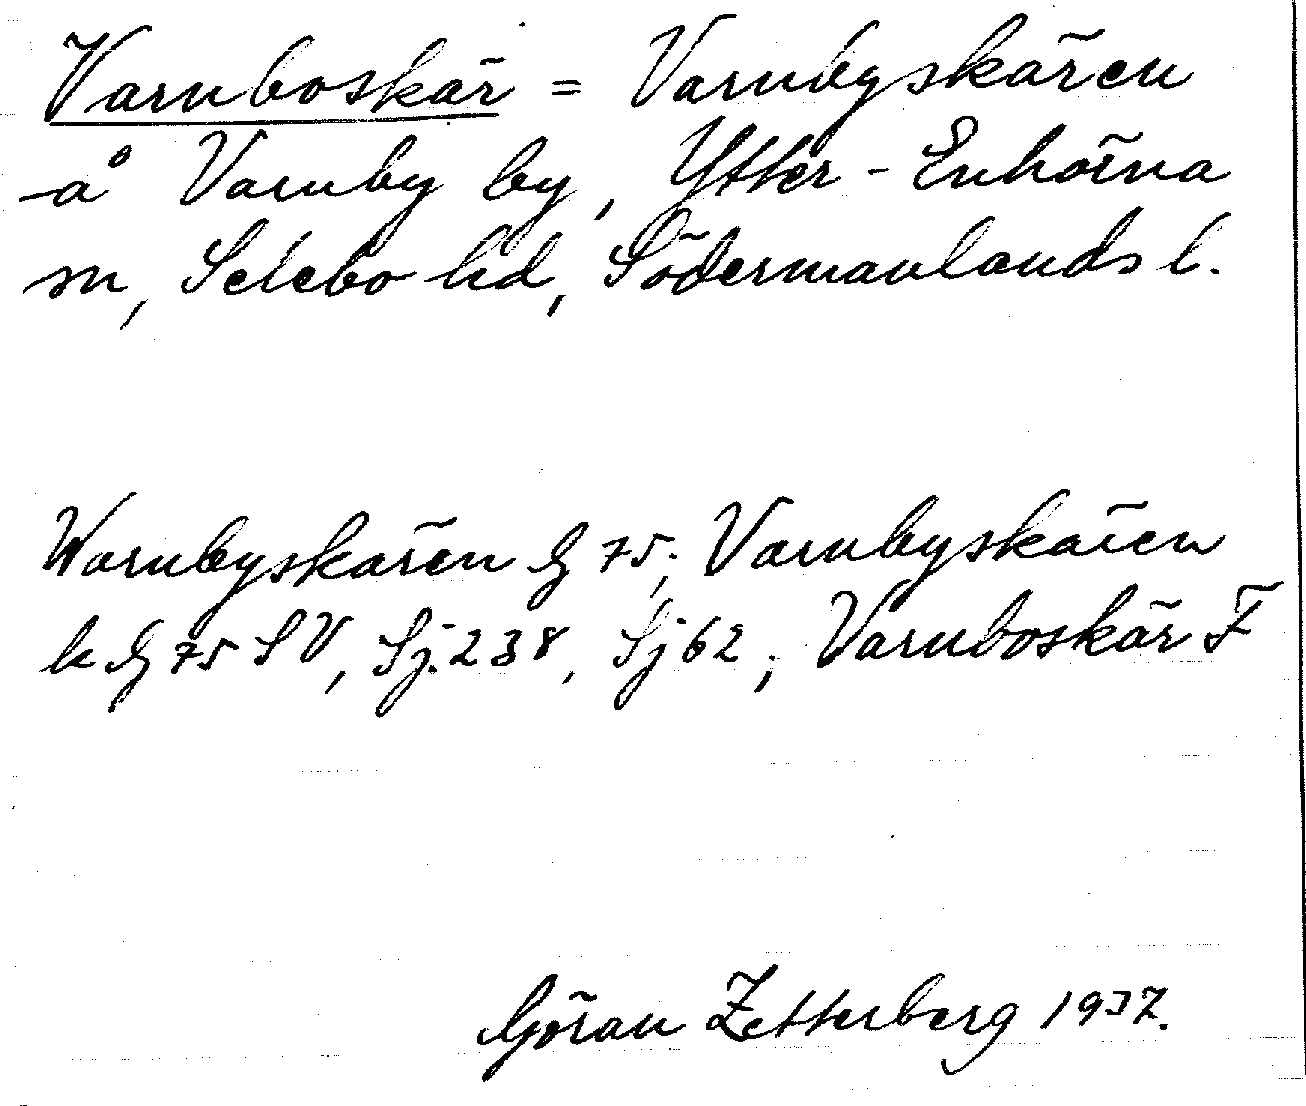 Varnboskär = Varnbyskären
å Varnby by, Ytter-Enhörna
sn, Selebo hd, Södermanlands l.
Warnbyskären G 75; Varnbyskären
k G 75 SV, Sj. 238, Sj 62; Varnboskär F
Göran Zetterberg 1937.